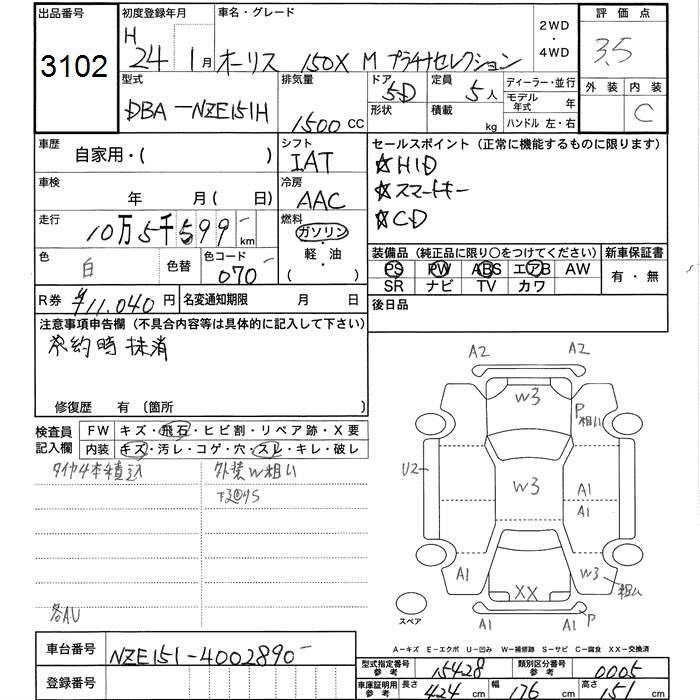 出品番号 初度登録年月 車名・グレード 2WD ・ 4WD 評価点
3102 H 24 1月 オーリス 150X M プラチナセレクション 3.5
型式 排気量 ドア 定員 ディーラー・並行 外装 内装
DBA-NZE151H 1500 CC 5D 5人 モデル年式 年 C
形状 積載 kg ハンドル 左・右
車歴 自家用・( ) シフト IAT セールスポイント (正常に機能するものに限ります)
☆HID
車検 年 月(日) 冷房 AAC ☆スマートキー
走行 10万5千599km 燃料 ガソリン・軽・油 ( ) ☆CD
色 白 色替 色コード 070 装備品 (純正品に限り○をつけてください) 新車保証書
PS PW ABS エアB AW 有・無
SR ナビ TV カワ
R券 ¥11,040円 名変通知期限 月 日 後日品
注意事項申告欄 (不具合内容等は具体的に記入して下さい)
予約時抹消
修復歴 有 (箇所 )
検査員記入欄 FW キズ・飛石・ヒビ割・リペア跡・X要
内装 キズ・汚レ・コゲ・穴・スレ・キレ・破レ
タイヤ4本積込 外装W粗い
各AU
A2 A2
W3 P 粗い
U2 W3 A1
A1
A1 W3 粗い
XX
スペア P
A-キズ E-エクボ U-凹み W-補修跡 S-サビ C-腐食 XX-交換済
車台番号 NZE151-4002890
登録番号
型式指定番号 参考 15428 類別区分番号 参考 0005
車庫証明用 参考 長さ 424 cm 幅 176 cm 高さ 151 cm